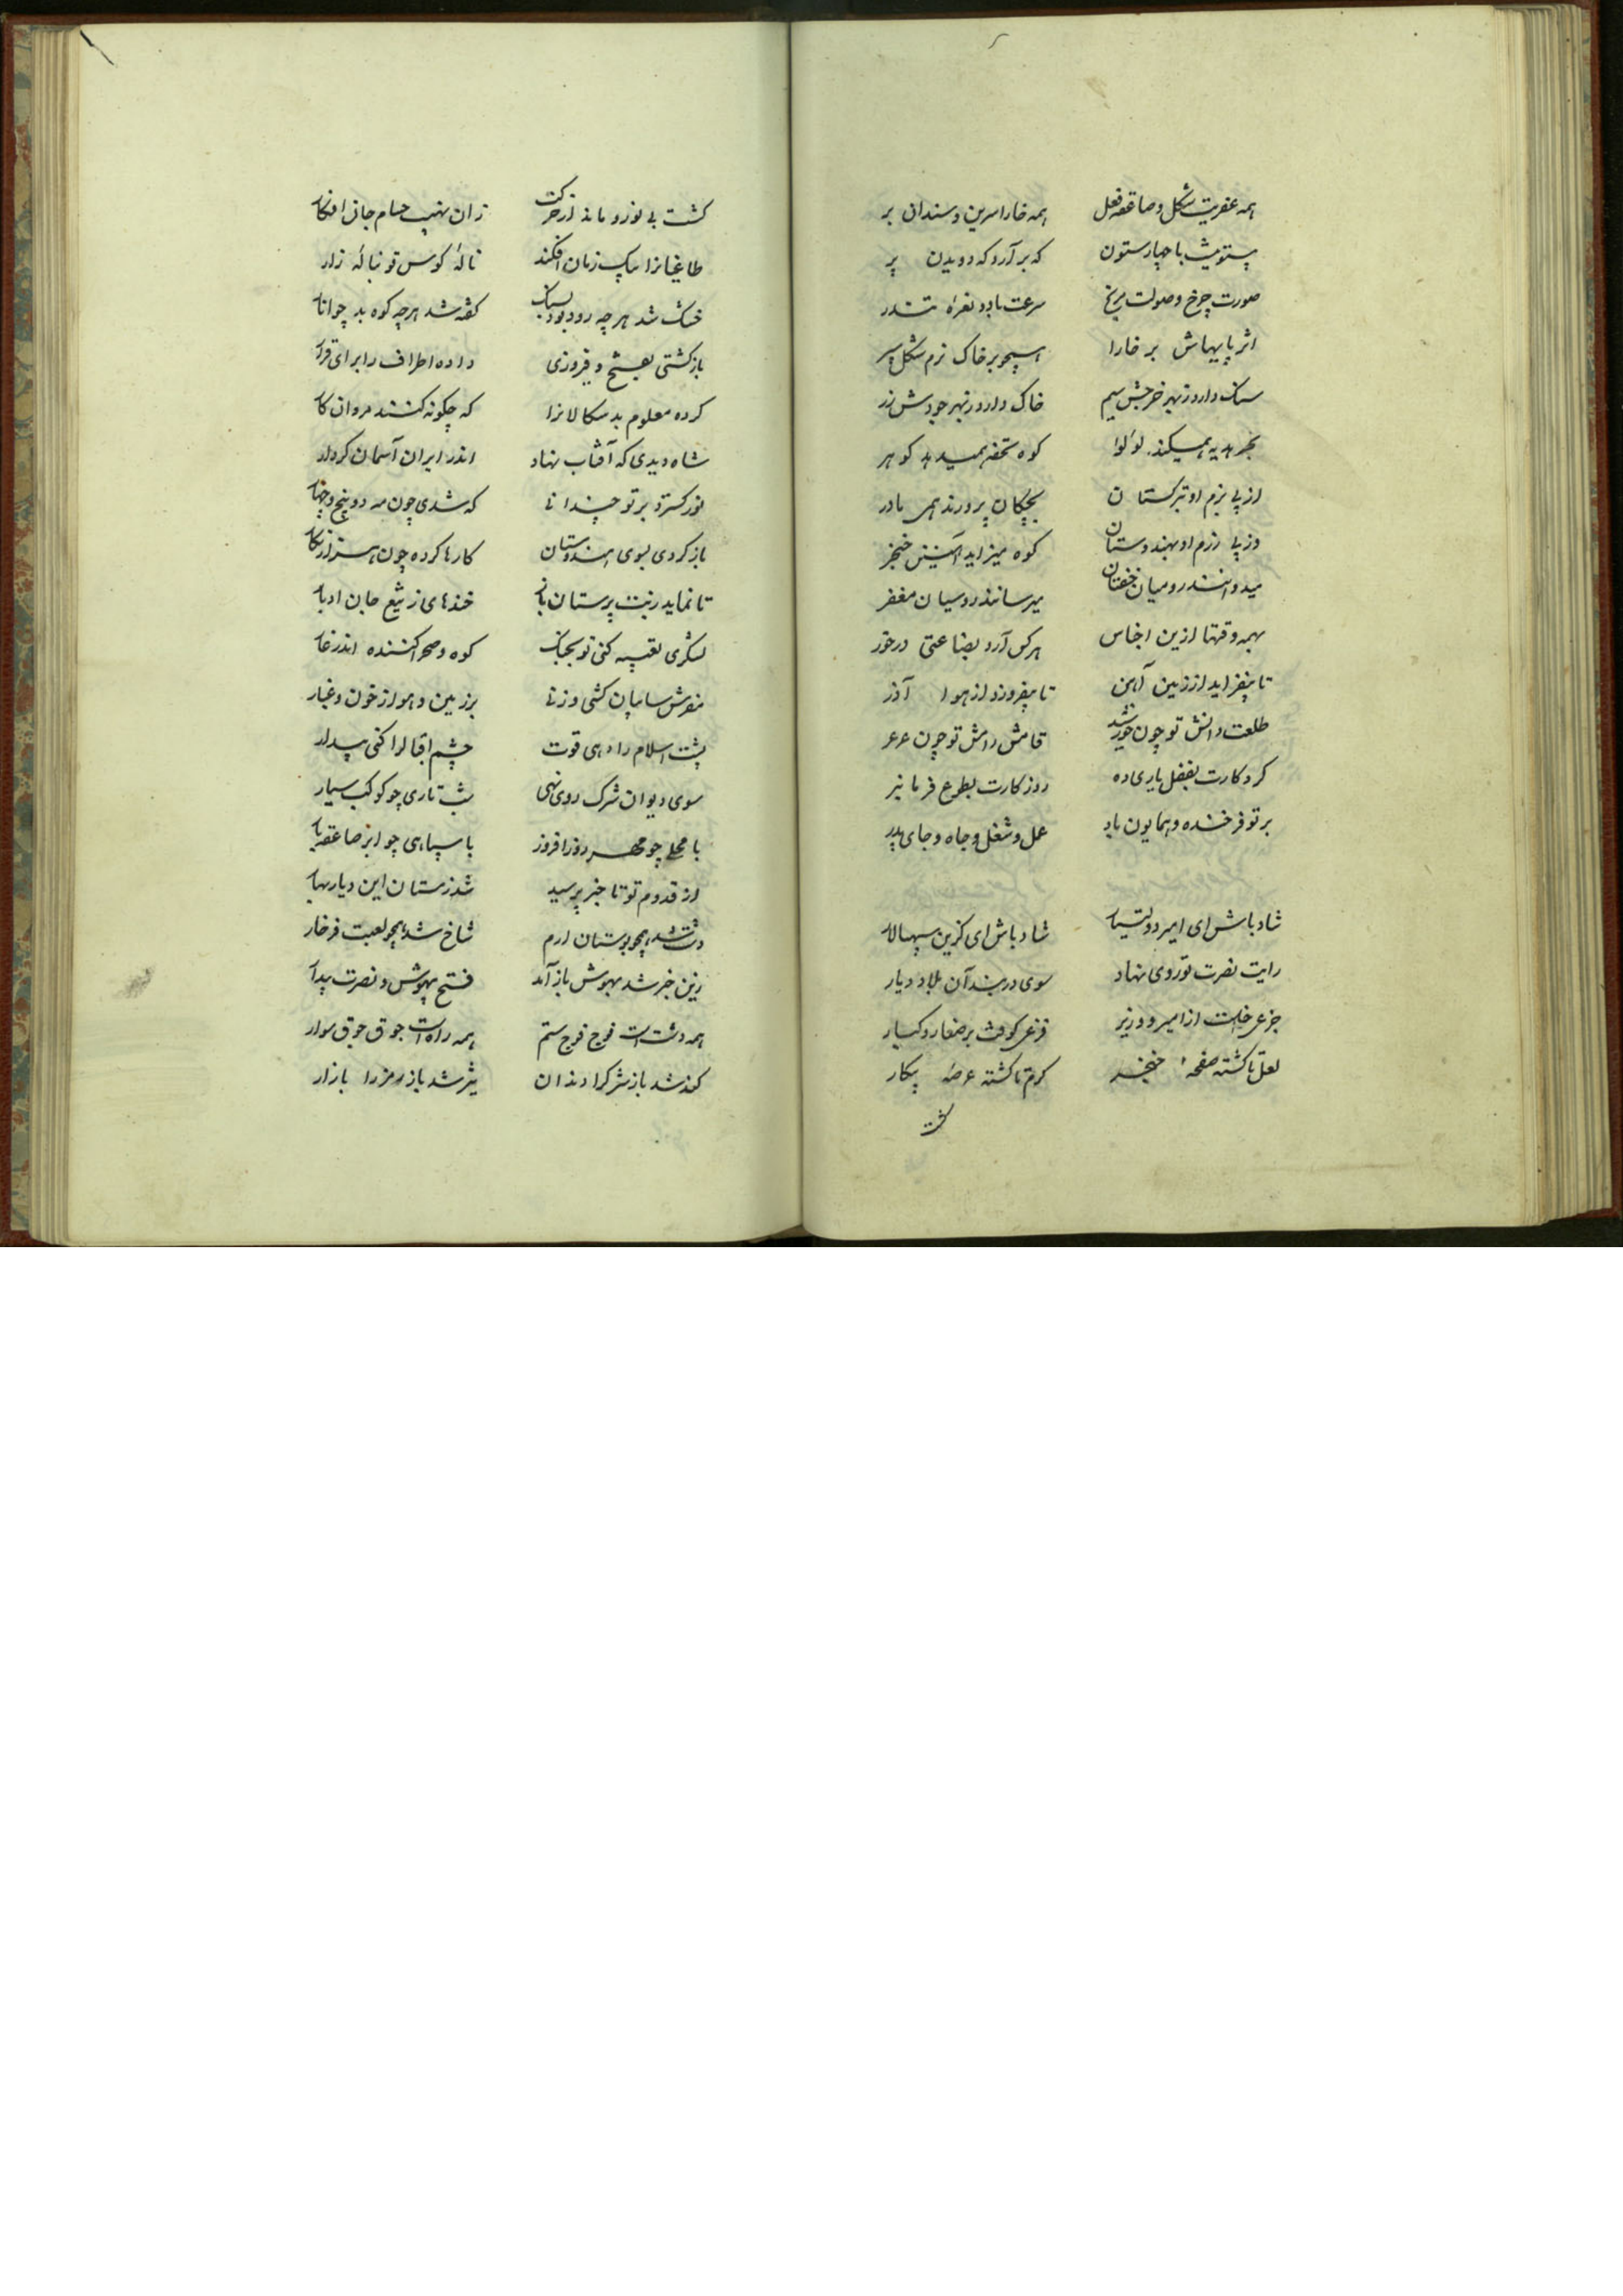 همه عفریت شکل و صاعقه فعل همه خارا سرین و سندان بر
بیستونیست با چهار ستون که برآرد که دویدن پر
صورت چرخ و صولت مریخ سرعت باد و نعره تندر
اثر پایهاش بر خارا همچو بر خاک نرم شکل سپر
سنک دارد ز بهر خرجش سیم خاک دارد ز بهر جودش زر
بحر هدیه همیکند لولوا کوه تحفه همیدهد کوهر
از پی بزم او ترکستان بچکان پرورند همی مادر
وز پی رزم او بهندوستان کوه میزاید آهنین خنجر
میدوانند رومیان خفتان میرسانند روسیان مغفر
بهمه وقتها ازین اجناس هر کس آرد بضاعتی درخور
تا بیفزاید از زمین آهن تا بیفروزد از هوا آذر
طلعت دانش تو چون خورشید قامت رامش تو چون عرعر
کردکارت بفضل یاری ده روزکارت بطوع فرمانبر
بر تو فرخنده و همایون باد عمل و شغل و جاه و جای پدر
شاد باش ای امیر دولتیار شاد باش ای کزین سپهسالار
رایت نصرت تو روی نهاد سوی دربند آن بلاد و دیار
جزعی خاست از امیر و وزیر فزعی کوفت بر صغار و کبار
لعل ناکشته صفحهٔ خنجر کرم ناکشته عرصهٔ پیکار
کشت
کشت بی نور و مانده از حرکت زان نهیب حسام جان اوبار
طاغیانرا بیک زمان افکند نالهٔ کوس تو بنالهٔ زار
خشک شد هرچه رود بود بسنک کفته شد هرچه کوه بد چو انار
بازکشتی بفتح و فیروزی داده اطراف را برای قرار
کرده معلوم بدسکالانرا که چکونه کنند مردان کار
شاه دیدی که آفتاب نهاد اندر ایران آسمان کردار
نور کسترد بر تو چندانی که شدی چون مه دو پنج و چهار
باز کردی بسوی هندوستان کارها کرده چون هزار نکار
تا نماید ز بت پرستان باز خندهای ز تیغ جان اوبار
لشکری تعبیه کنی تو بجنک کوه و صحرا کننده اندر غار
مفرش و سایبان کشی و زنی بر زمین و هوا ز خون و غبار
پشت اسلام را دهی قوت چشم اقبال را کنی بیدار
سوی دیوان شرک روی نهی شب تاری چو کوکب سیار
با محلی چو مهر روزافروز با سپاهی چو ابر صاعقه بار
از قدوم تو تا خبر برسید شد زمستان این دیار بهار
دشت شد همچو بوستان ارم شاخ شد همچو لعبت فرخار
زین خبر شد بهوش باز آمد فتح بیهوش و نصرت بیدار
همه دشت است فوج فوج ستم همه راه است جوق جوق سوار
کند شد باز شرک را دندان تیز شد باز رمز را بازار